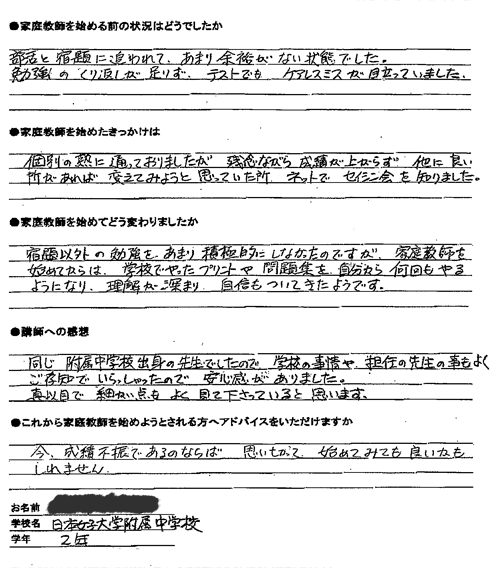 ●家庭教師を始める前の状況はどうでしたか
部活と宿題に追われて、あまり余裕がない状態でした。
勉強のくり返しが足りず、テストでも ケアレスミスが目立っていました。
●家庭教師を始めたきっかけは
個別の塾に通っておりましたが 残念ながら成績が上がらず 他に良い
所があれば 変えてみようと思っていた所 ネットで セイシン会を知りました。
●家庭教師を始めてどう変わりましたか
宿題以外の勉強を、あまり積極的にしなかったのですが、家庭教師を
始めてからは、学校でやったプリントや問題集を、自分から何回もやる
ようになり、理解が深まり 自信もついてきたようです。
●講師への感想
同じ 附属中学校出身の先生でしたので、学校の事情や、担任の先生の事もよく
ご存知でいらっしゃったので 安心感がありました。
真以目で 細かい点も よく見て下さっていると思います。
●これから家庭教師を始めようとされる方へアドバイスをいただけますか
今、成績不振であるのならば 思いきって、始めてみても良いかも
しれません
お名前
学校名 日本女子大学附属中学校
学年 2年